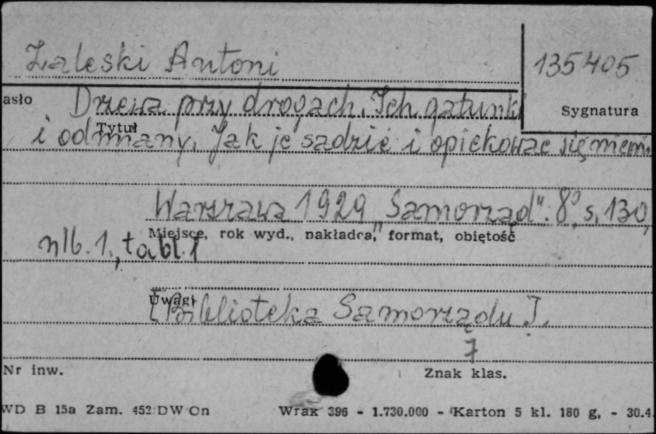 Zaleski Antoni
135405
asło
Drzewa przy drogach. Ich gatunki
Sygnatura
Tytuł
i odmiany. Jak je sadzić i opiekować się niemi.
Warszawa 1929 „Samorząd". 8º, s. 130,
Miejsce, rok wyd., nakładca, format, objętość
nlb. 1., tabl. 1
Uwagi
[Biblioteka Samorządu].
7
Nr inw.
Znak klas.
WD B 15a Zam. 452 DW On
Wrak 396 - 1.730.000 - Karton 5 kl. 180 g. - 30.4.